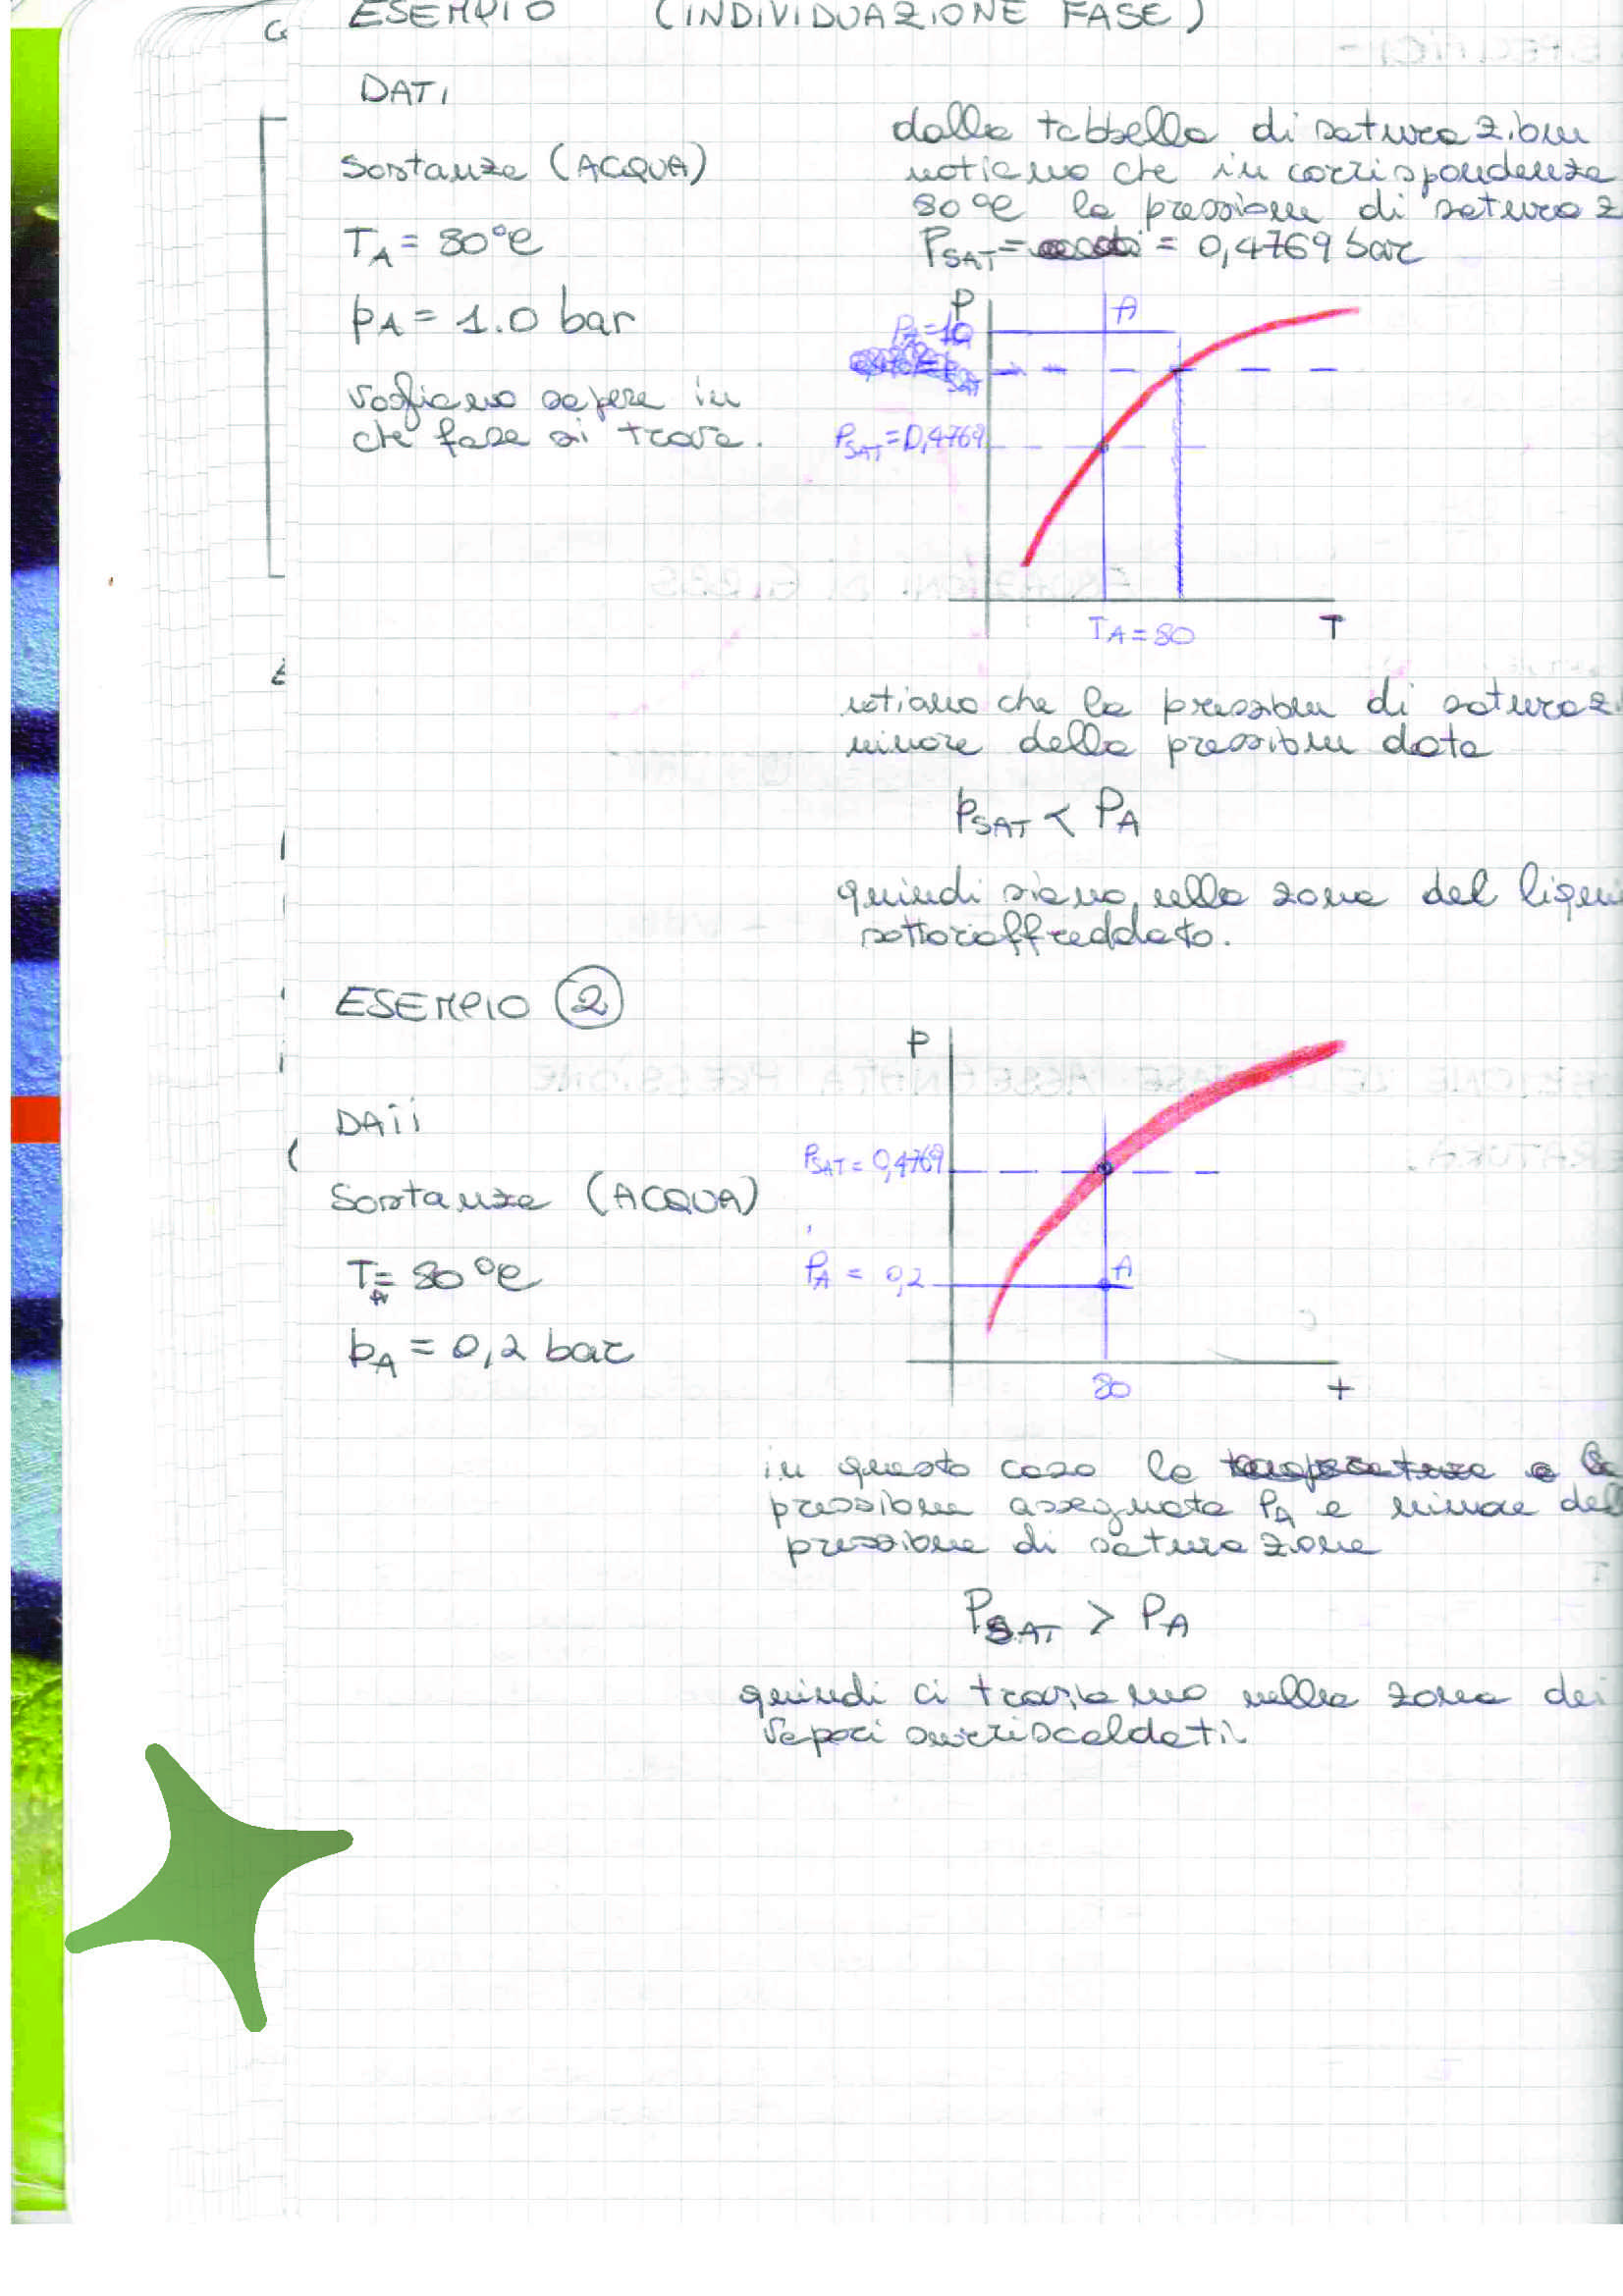 ESEMPIO (INDIVIDUAZIONE FASE)
DATI
Sostanza (ACQUA)
TA = 80°C
PA = 1.0 bar
Vogliamo sapere in
che fase si trova.
dalla tabbella di saturazion
notiamo che in corrispondenza
80°C la pressione di saturaz
PSAT = = 0,4769 bar
P
A
PA=1,0
PSAT=0,4769
TA=80
T
notiamo che la pression di saturaz
minore della pression data
PSAT < PA
quindi siamo nella zona del liqui
sottoraffreddato.
ESEMPIO 2
DATI
Sostanza (ACQUA)
TA = 80°C
PA = 0,2 bar
P
PSAT = 0,4769
PA = 0,2
A
80
T
in questo caso la temperatura e la
pressione assegnata PA e minore del
pressione di saturazione
PSAT > PA
quindi ci troviamo nella zona dei
vapori surriscaldati.